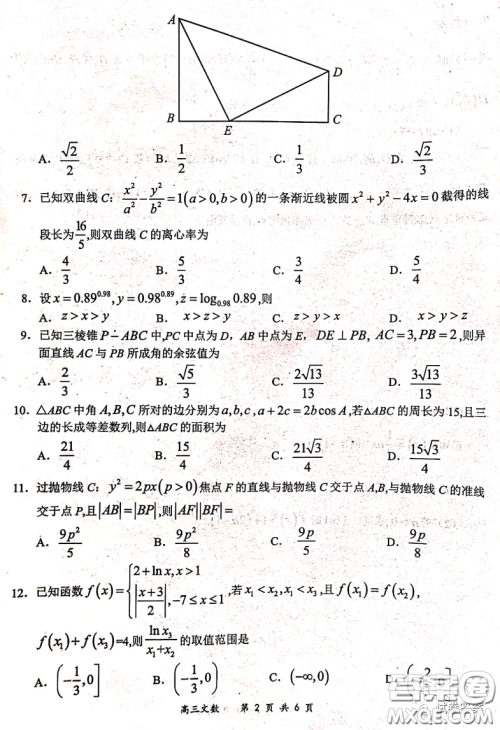 A
D
B
E
C
A. √2/2 B. 1/2 C. 1/3 D. √2/3
7. 已知双曲线 C: x²/a² - y²/b² = 1(a>0,b>0) 的一条渐近线被圆 x²+y²-4x=0 截得的线
段长为 16/5,则双曲线 C 的离心率为
A. 4/3 B. 5/3 C. 3/4 D. 5/4
8. 设 x=0.89^0.98, y=0.98^0.89, z=log_0.98 0.89,则
A. z>x>y B. z>y>x C. y>z>x D. x>y>z
9. 已知三棱锥 P-ABC 中,PC 中点为 D, AB 中点为 E, DE⊥PB, AC=3,PB=2,则异
面直线 AC 与 PB 所成角的余弦值为
A. 2/3 B. √5/3 C. 2√13/13 D. 3√13/13
10. △ABC 中角 A,B,C 所对的边分别为 a,b,c, a+2c=2bcosA,若△ABC 的周长为 15,且三
边的长成等差数列,则△ABC 的面积为
A. 21/4 B. 15/4 C. 21√3/4 D. 15√3/4
11. 过抛物线 C: y²=2px(p>0) 焦点 F 的直线与抛物线 C 交于点 A,B,与抛物线 C 的准线
交于点 P,且|AB|=|BP|,则|AF||BF|=
A. 9p²/5 B. 9p²/8 C. 9p/5 D. 9p/8
12. 已知函数 f(x)={2+lnx,x>1
|(x+3)/2|,-7≤x≤1 ,若 x₁<x₂, x₁<x₃,且 f(x₁)=f(x₂),
f(x₁)+f(x₃)=4,则 lnx₃/(x₁+x₂) 的取值范围是
A. (-1/3,0] B. (-1/3,0) C. (-∞,0)
高三文数 第 2 页 共 6 页